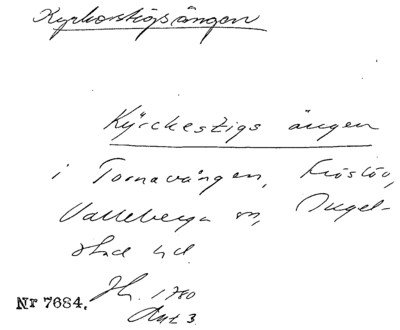 Kyrkostigsängen
Kÿrckestigs ängen
i Tornavången, Fröslöv,
Valleberga sn, Ingel-
stad hd.
Nr 7684. 1780
Akt 3.